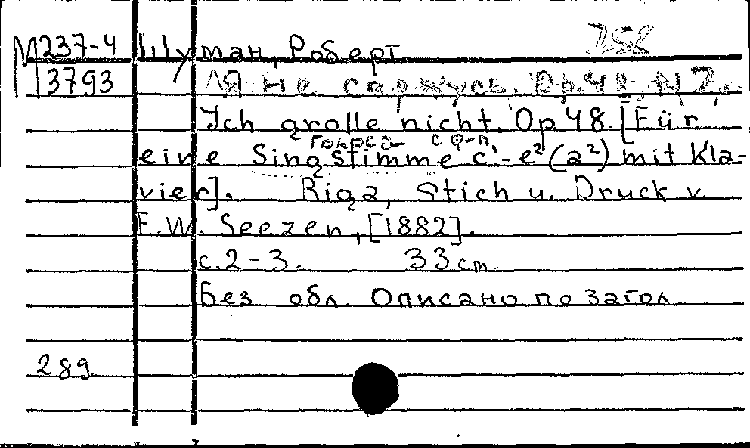 М237-4 Шуман, Роберт 258
13793 [Я не сержусь. Op. 48 №7.
Ich grolle nicht. Op 48. [Für
голоса с ф-п.
eine Singstimme c'-e²(a²) mit Kla-
vier]. Riga, Stich u. Druck v.
F.W. Seezen, [1882].
с. 2-3. 33 cm.
Без обл. Описано по загол.
289